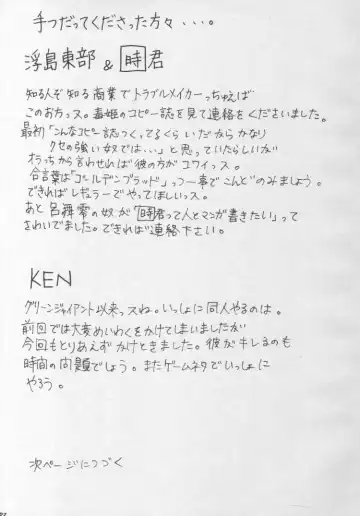 手つだってくださった方々・・・。
浮島東部 & 時君
知る人ぞ知る商業でトラブルメイカーっちゅえば
このお方っス。毒姫のコピー誌を見て連絡をくださいました。
最初「こんなコピー誌つくってるくらいだからかなり
クセの強い奴では・・・」と思っていたらしいが
オラっちから言わせれば彼の方がコワイっス。
合言葉は「ゴールデンブラッド」っつー事でこんどのみましょう。
できればレギュラーでやってほしいっス。
あと呂舞零の奴が「時君って人とマンガ書きたい」って
さわいでました。できれば連絡下さい。
KEN
グリーンジャイアント以来っスね。いっしょに同人やるのは。
前回では大変めいわくをかけてしまいましたが
今回もとりあえずかけときました。彼がキレるのも
時間の問題でしょう。またゲームネタでいっしょに
やろう。
次ページにつづく